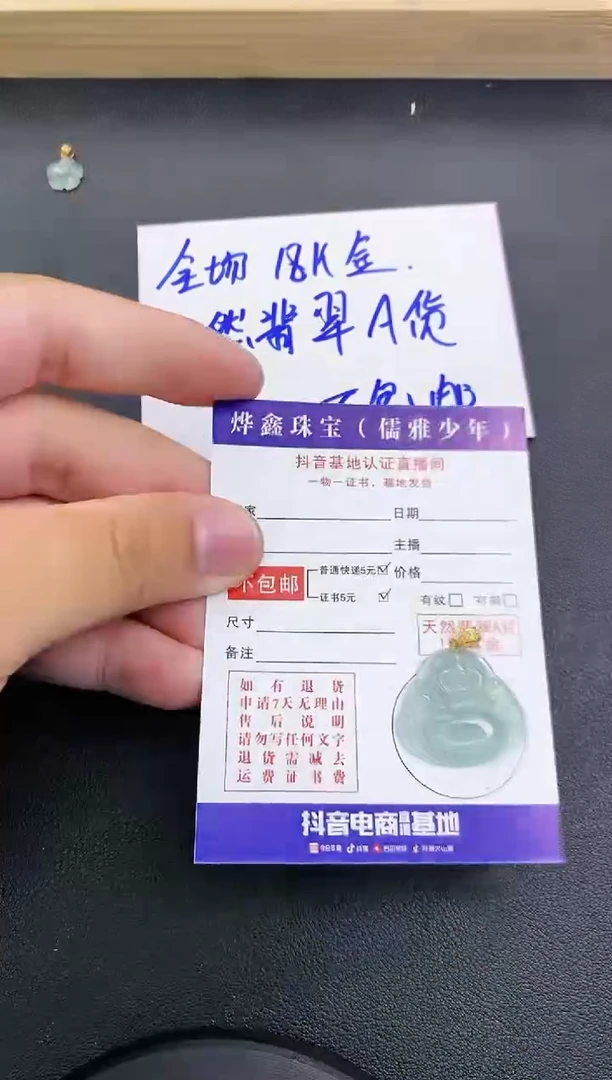 全场 18K金.
然翡翠A货
不包邮
烨鑫珠宝（儒雅少年）
抖音基地认证直播间
一物一证书、基地发货
家 日期
主播
不包邮 普通快递5元☑ 价格
证书5元 ☑ 有纹□
尺寸
备注
天然翡翠A货
如有退货
申请7天无理由
售后说明
请勿写任何文字
退货需减去
运费证书费
抖音电商直播基地
今日头条 抖音 西瓜视频 抖音火山版